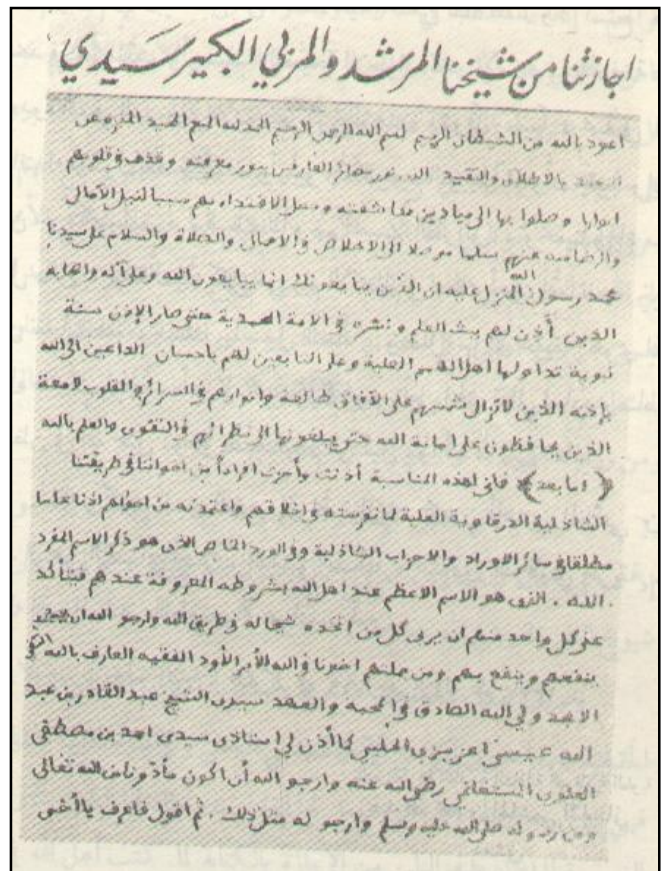 اجازتنا من شيخنا المرشد والمربي الكبير سيدي
اعوذ بالله من الشيطان الرجيم بسم الله الرحمن الرحيم الحمد لله المبدع الحميد المنزه عن
بالاطلاق والتقييد الذي نور بصائر العارفين بنور معرفته وقذف في قلوبهم
انوارا وصلوا بها الى ميادين مشاهدته وجعل الاقتداء بهم سببا لنيل الآمال
عنهم سلما موصلا الى الاخلاص في الاعمال والصلاة والسلام على سيدنا
محمد رسول الله المنزل عليه ان الذين يبايعونك انما يبايعون الله وعلى آله واصحابه
الذين أذن لهم ببث العلم ونشره في الامة المحمدية حتى صار الإذن سنة
نبوية تداولها اهل الهمم العلية وعلى التابعين لهم بإحسان الداعين الى الله
بإذنه الذين لاتزال شمسهم على الآفاق طالعة وانوارهم في السرائر والقلوب لامعة
الذين يحافظون على امانة الله حتى يبلغونها الى نظرائهم في التقوى والعلم بالله
﴿ اما بعد ﴾ فاني لهذه المناسبة أذنت وأجزت افراداً من اخواننا في طريقتنا
الشاذلية الدرقاوية العلية لما تفرسته في اخلاقهم واعتمدته من احوالهم اذنا عاما
مطلقا في سائر الاوراد والاحزاب الشاذلية وفي الورد الخاص الذي هو ذكر الاسم المفرد
. الله . الذي هو الاسم الاعظم عند اهل الله بشروطه المعروفة عندهم فيتأكد
على كل واحد منهم ان يربي كل من اتخذه شيخا له في طريق الله وارجو الله ان
ينفعهم وينفع بهم ومن جملتهم اخونا في الله الأبر الأود الفقيه العارف بالله
الامجد ولي الله الصادق في المحبة والعهد سيدي الشيخ عبد القادر بن عبد
الله عيسى اعزيزي الحلبي كما أذن لي استاذي سيدي احمد بن مصطفى
العلوي المستغانمي رضي الله عنه وارجو الله أن اكون مأذونا من الله تعالى
ومن رسوله صلى الله عليه وسلم وارجو له مثل ذلك . ثم اقول فاعرف يا أخي